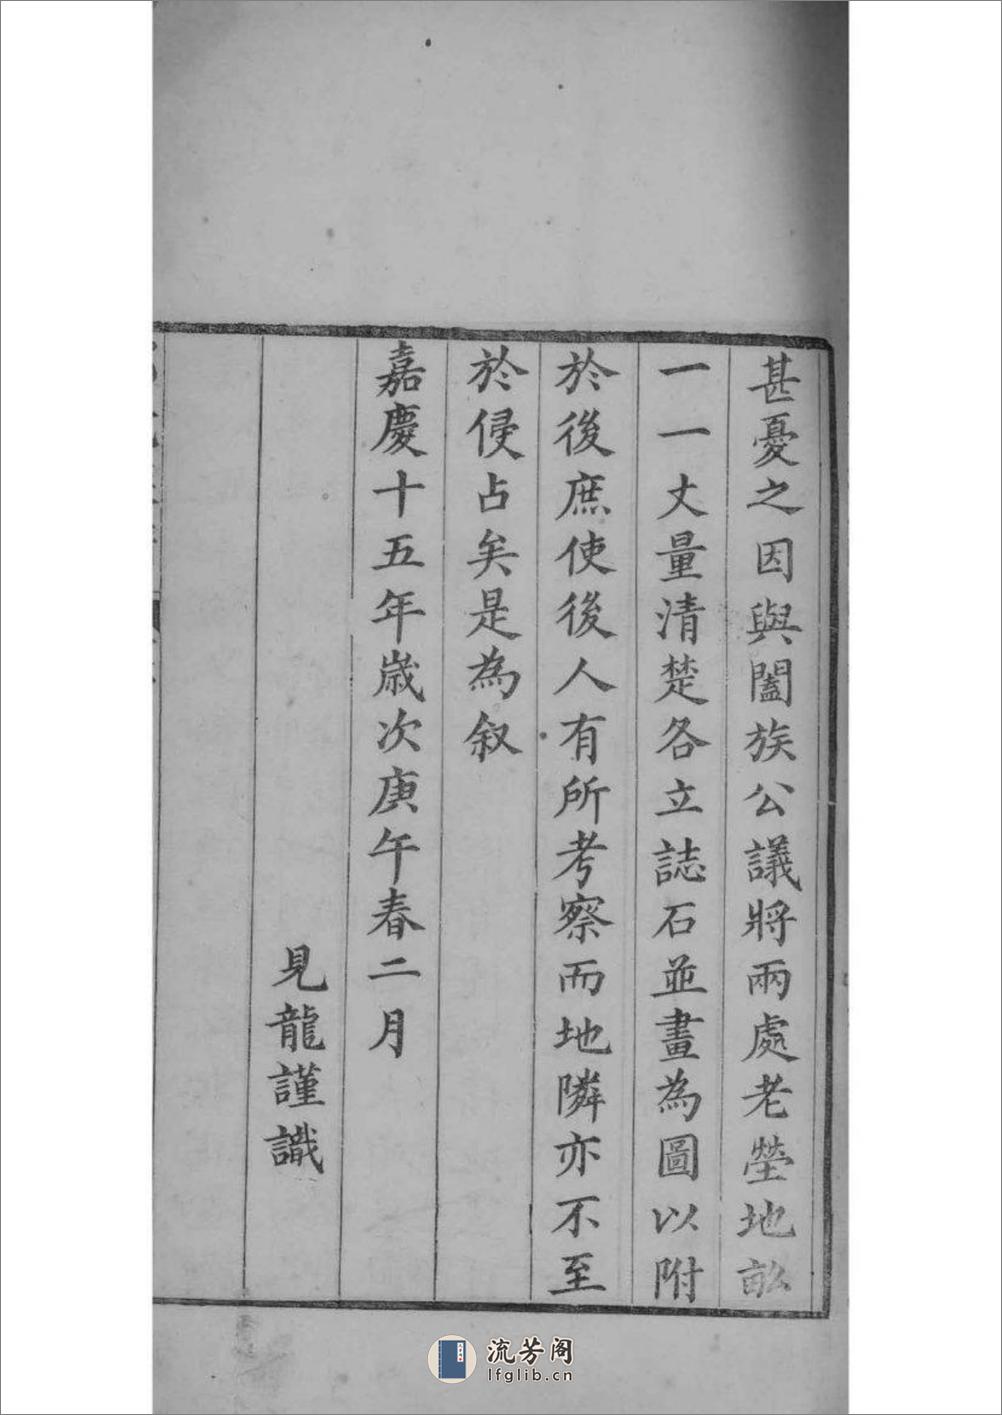 甚憂之因與闔族公議將兩處老塋地畝
一一丈量清楚各立誌石並畫為圖以附
於後庶使後人有所考察而地隣亦不至
於侵占矣是為叙
嘉慶十五年歲次庚午春二月
見龍謹識
流芳阁
lfglib.cn